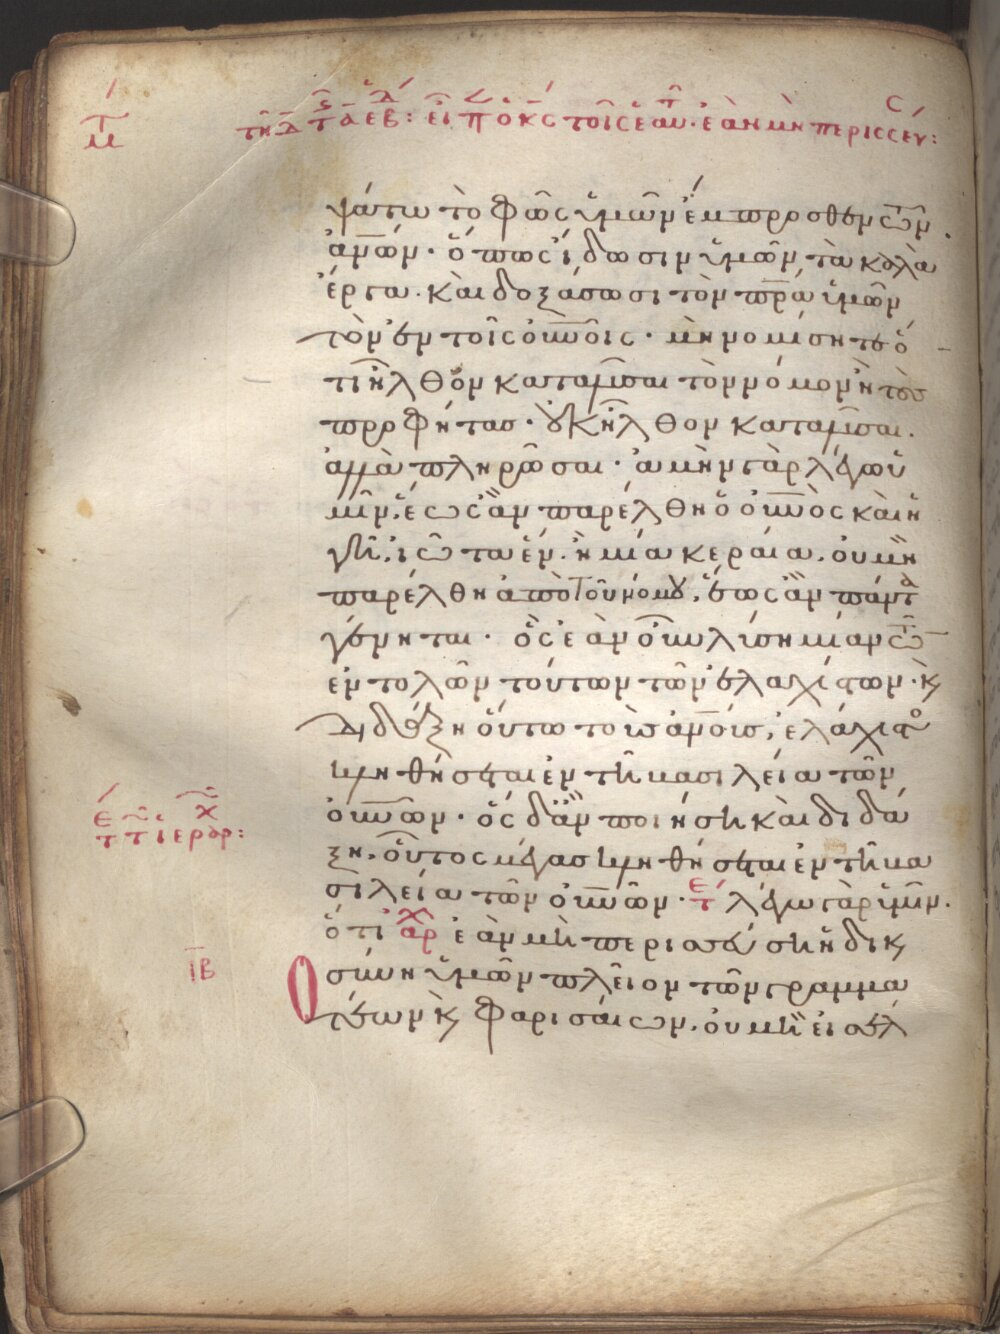 τῆ δ τ ἀ ἑβ: εἶπ ὁ κς τοῖς ἑαυ· ἐὰν μὴ περισσεύ:
ψάτω τὸ φῶς ὑμῶν ἔμπροσθεν τῶν
ἀνων· ὅπως ἴδωσιν ὑμῶν τὰ καλὰ
ἔργα. καὶ δοξάσωσι τὸν πρα ὑμῶν
τὸν ἐν τοῖς οὐνοις· μὴ νομίσητε ὅ
τι ἦλθον καταλῦσαι τὸν νόμον ἢ τοὺς
προφήτας· οὐκ ἦλθον καταλῦσαι.
ἀλλὰ πληρῶσαι· ἀμὴν γὰρ λέγω ὑ
μῖν, ἕως ἂν παρέλθη ὁ οὐνὸς καὶ ἡ
γῆ, ἰῶτα ἓν. ἢ μία κεραία. οὐ μὴ
παρέλθη ἀπὸ τοῦ νόμου, ἕως ἂν πάντα
γένηται· ὃς ἐὰν οὖν λύση μίαν τῶν
ἐντολῶν τούτων τῶν ἐλαχίστων· κὲ
διδάξη οὕτω τοὺς ἀνους, ἐλάχιστο
κληθήσεται ἐν τῆ βασιλεία τῶν
οὐνων· ὃς δ' ἂν ποιήση καὶ διδά
ξη. οὗτος μέγας κληθήσεται ἐν τῆ βα
σιλεία τῶν οὐνων· τε λέγω γὰρ ὑμῖν.
ὅτι ἀρχ ἐὰν μὴ περισσεύση ἡ δικ
ιβ
οσύνη ὑμῶν πλεῖον τῶν γραμμα
τέων κὲ φαρισαίων. οὐ μὴ εἰσέλ